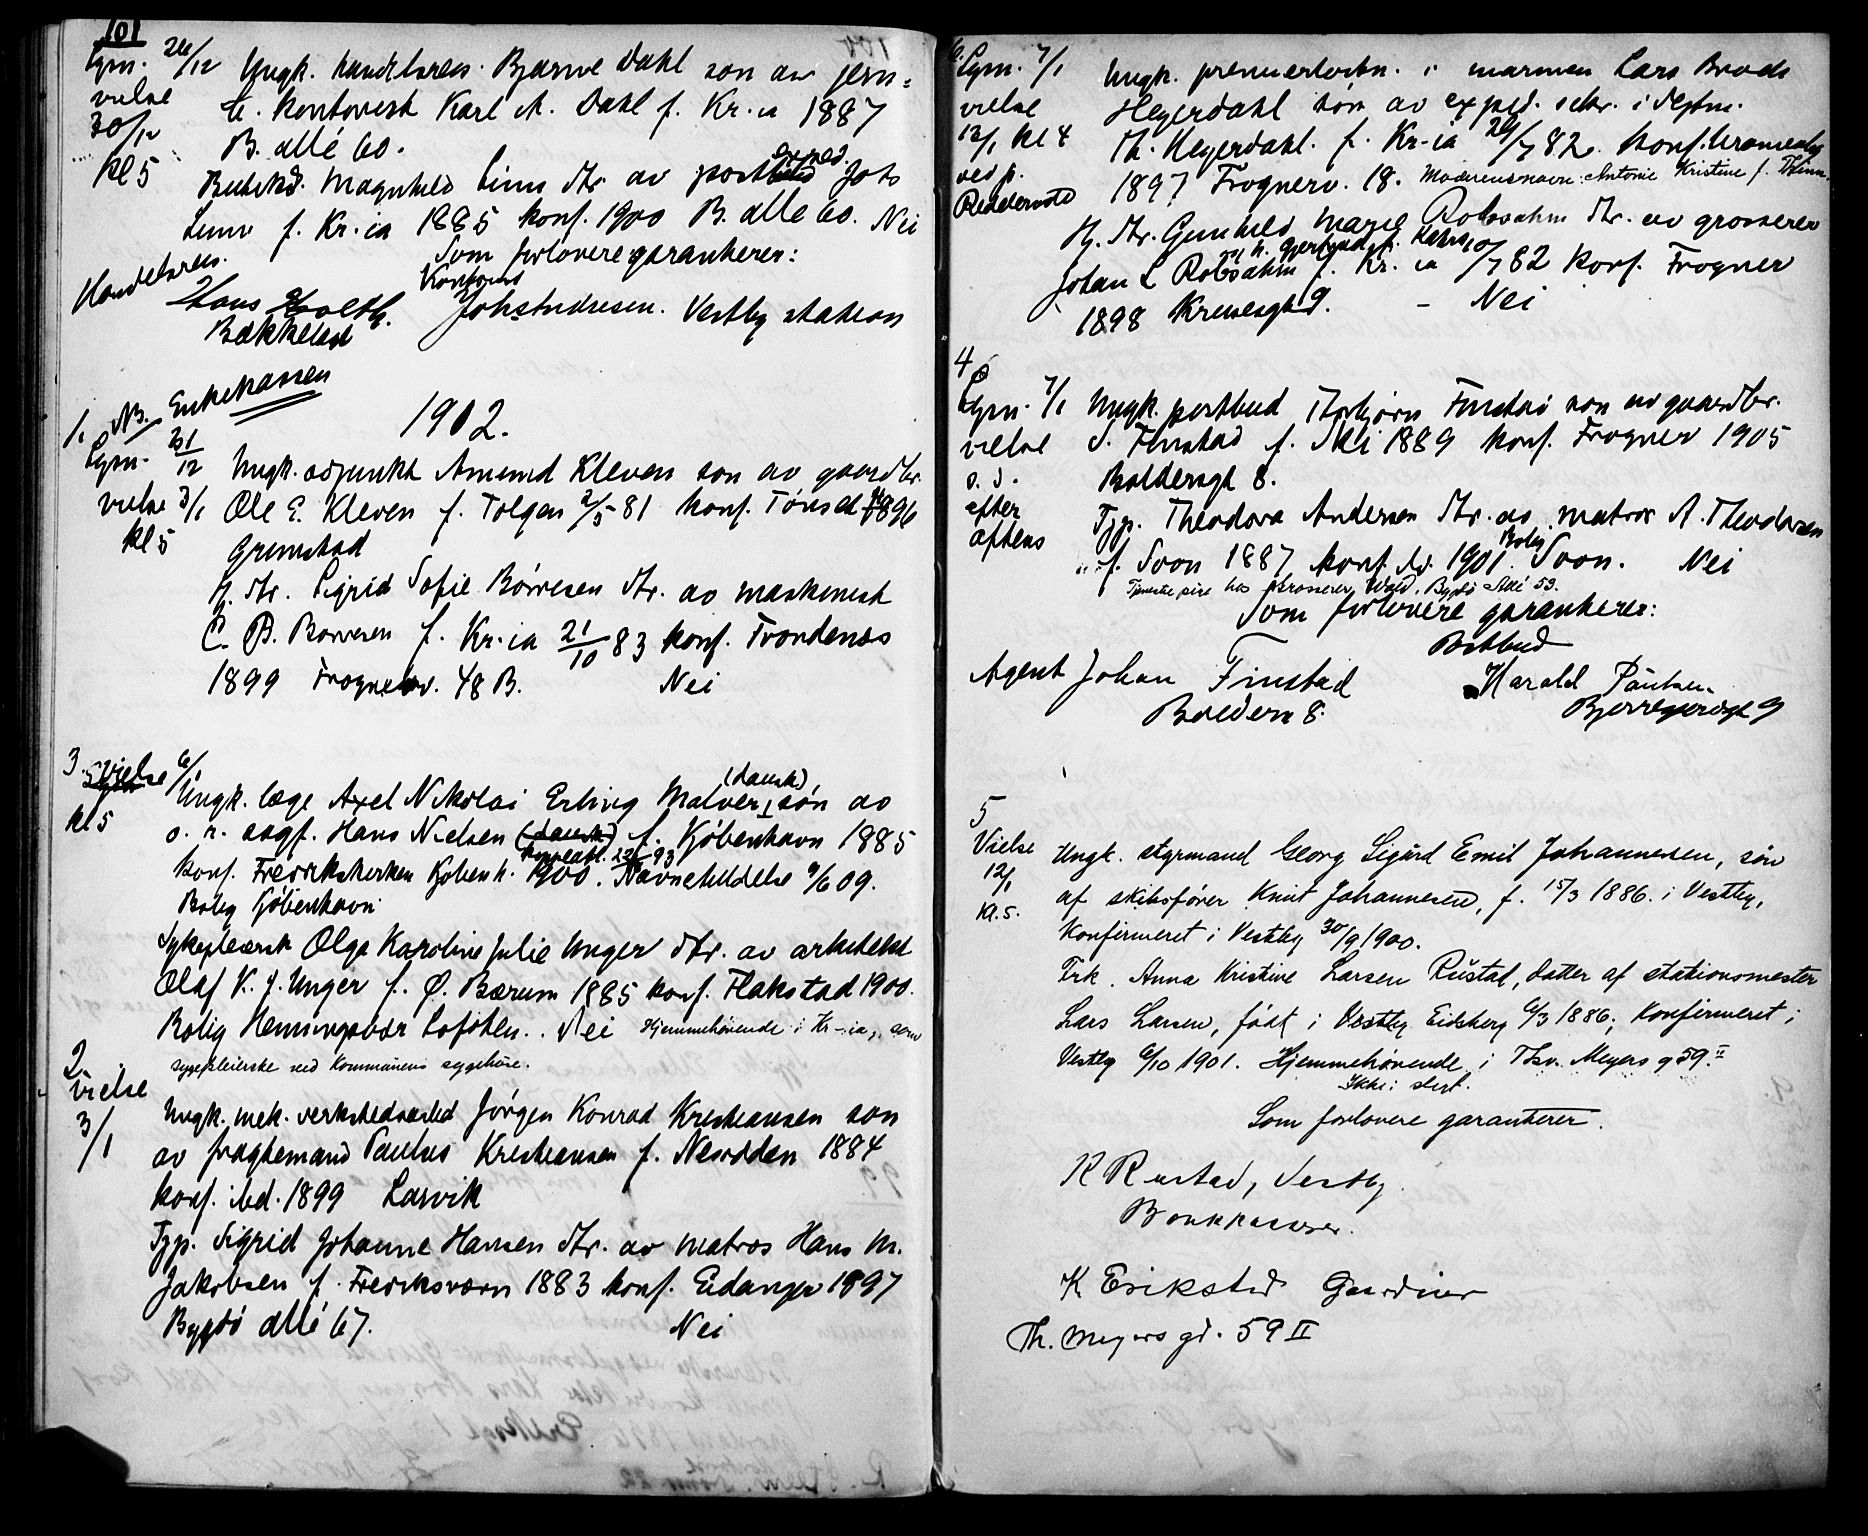 101
Lysn. 26/12 Ungk. handelsreis. Bjarne Dahl søn av jern=
vielse b. kontorist Karl A. Dahl f. Kr.ia 1887
30/12 B. allé 60.
kl 5 Butikd. Magnhild Linn dtr. av postbud Johs
Linn f. Kr.ia 1885 konf. 1900 B. allé 60. Nei
Som forlovere garanterer:
Handelsreis. Kontorist
Hans Holth. Joh Andresen. Vestby station
Bækkelaget
1. NB. Enkekassen
1912.
Lysn. 31/12 Ungk. adjunkt Amund Kleven søn av gaardbr.
vielse 3/1 Ole E. Kleven f. Tolgen 2/5 81 konf. Tønset 1896
kl 5 Grimstad
Hj. dtr. Sigrid Sofie Børresen dtr. av maskinist
C. B. Børresen f. Kr.ia 21/10 83 konf. Trondenes
1899 Frognerv. 48 B. Nei
3. vielse 6/1
Ungk. læge Axel Nikolai Erling Malver (dansk) søn av
kl 5 o. r. sagf. Hans Nielsen (dansk) f. Kjøbenhavn 1885
konf. Fredrikskirken Kjøbenh. 1900. Navnetildelse 9/6 09.
Bolig Kjøbenhavn
Sykepleiersk Olga Karoline Julie Unger dtr. av arkitekt
Olaf V. J. Unger f. Ø. Bærum 1885 konf. Flakstad 1900.
Bolig Henningsvær Lofoten. Nei Hjemmehørende i Kr-ia, som
sygepleierske ved Kommunens sygehuse.
2.
vielse
3/1 Ungk. mek. verkstedsarbd Jørgen Konrad Kristiansen søn
av fragtemand Paulus Kristiansen f. Nesodden 1884
konf. ibd. 1899 Larvik
Tjp. Sigrid Johanne Hansen dtr. av matros Hans M.
Jakobsen f. Fredriksværn 1883 konf. Eidanger 1897
Bygdø allé 67. Nei
6. Lysn. 7/1 Ungk. premierløitn. i marinen Lars Brods
vielse Heyerdahl søn av exped. sekr. i dept.
13/1 kl 4 Th. Heyerdahl. f. Kr-ia 26/7 82. konf. Uranienbg
ved p. 1897 Frognerv. 18. Moderensnavn: Antonie Kristine f. Thinn.
Riddervold
Hj. dtr. Gunhild Marie Robsahm dtr. av grosserer
Johan L Robsahm f. Kr.ia 10/7 82 konf. Frogner
1898 Kruses gt 9. – Nei
4
Lysn. 7/1 Ungk. postbud Thorbjørn Finstad søn av gaardbr.
vielse S. Finstad f. Ski 1889 konf. Frogner 1905
s. d. Baldersgt 8.
efter Tjp. Theodora Andersen dtr. av matros A. Theodorsen
aftens f. Soon 1887 konf. ib. 1901. Bolig Soon. Nei
Tjeneste pike hos Grosserer Wold, Bygdø Allé 53.
Som forlovere garanterer:
Postbud
Agent Johan Finstad Harald Paulsen
Baldersg 8. Bjerregardsgt 9
5
Vielse Ungk. styrmand Georg Sigurd Emil Johannesen, søn
12/1 af skibsfører Knut Johannesen, f. 15/3 1886. i Vestby,
Kl. 5. Konfirmeret i Vestby 30/9 1900.
Frk. Anna Kristine Larsen Rustad, datter af stationsmester
Lars Larsen, født i Vestby Eidsberg 6/3 1886; Konfirmeret i
Vestby 6/10 1901. Hjemmehørende i Thv. Meyers g 59 II
Ikke i slegt.
Som forlovere garanterer.
K Rustad, Vestby
Bankkasserer.
K Erikstad Gardiner
Th. Meyers gd. 59 II